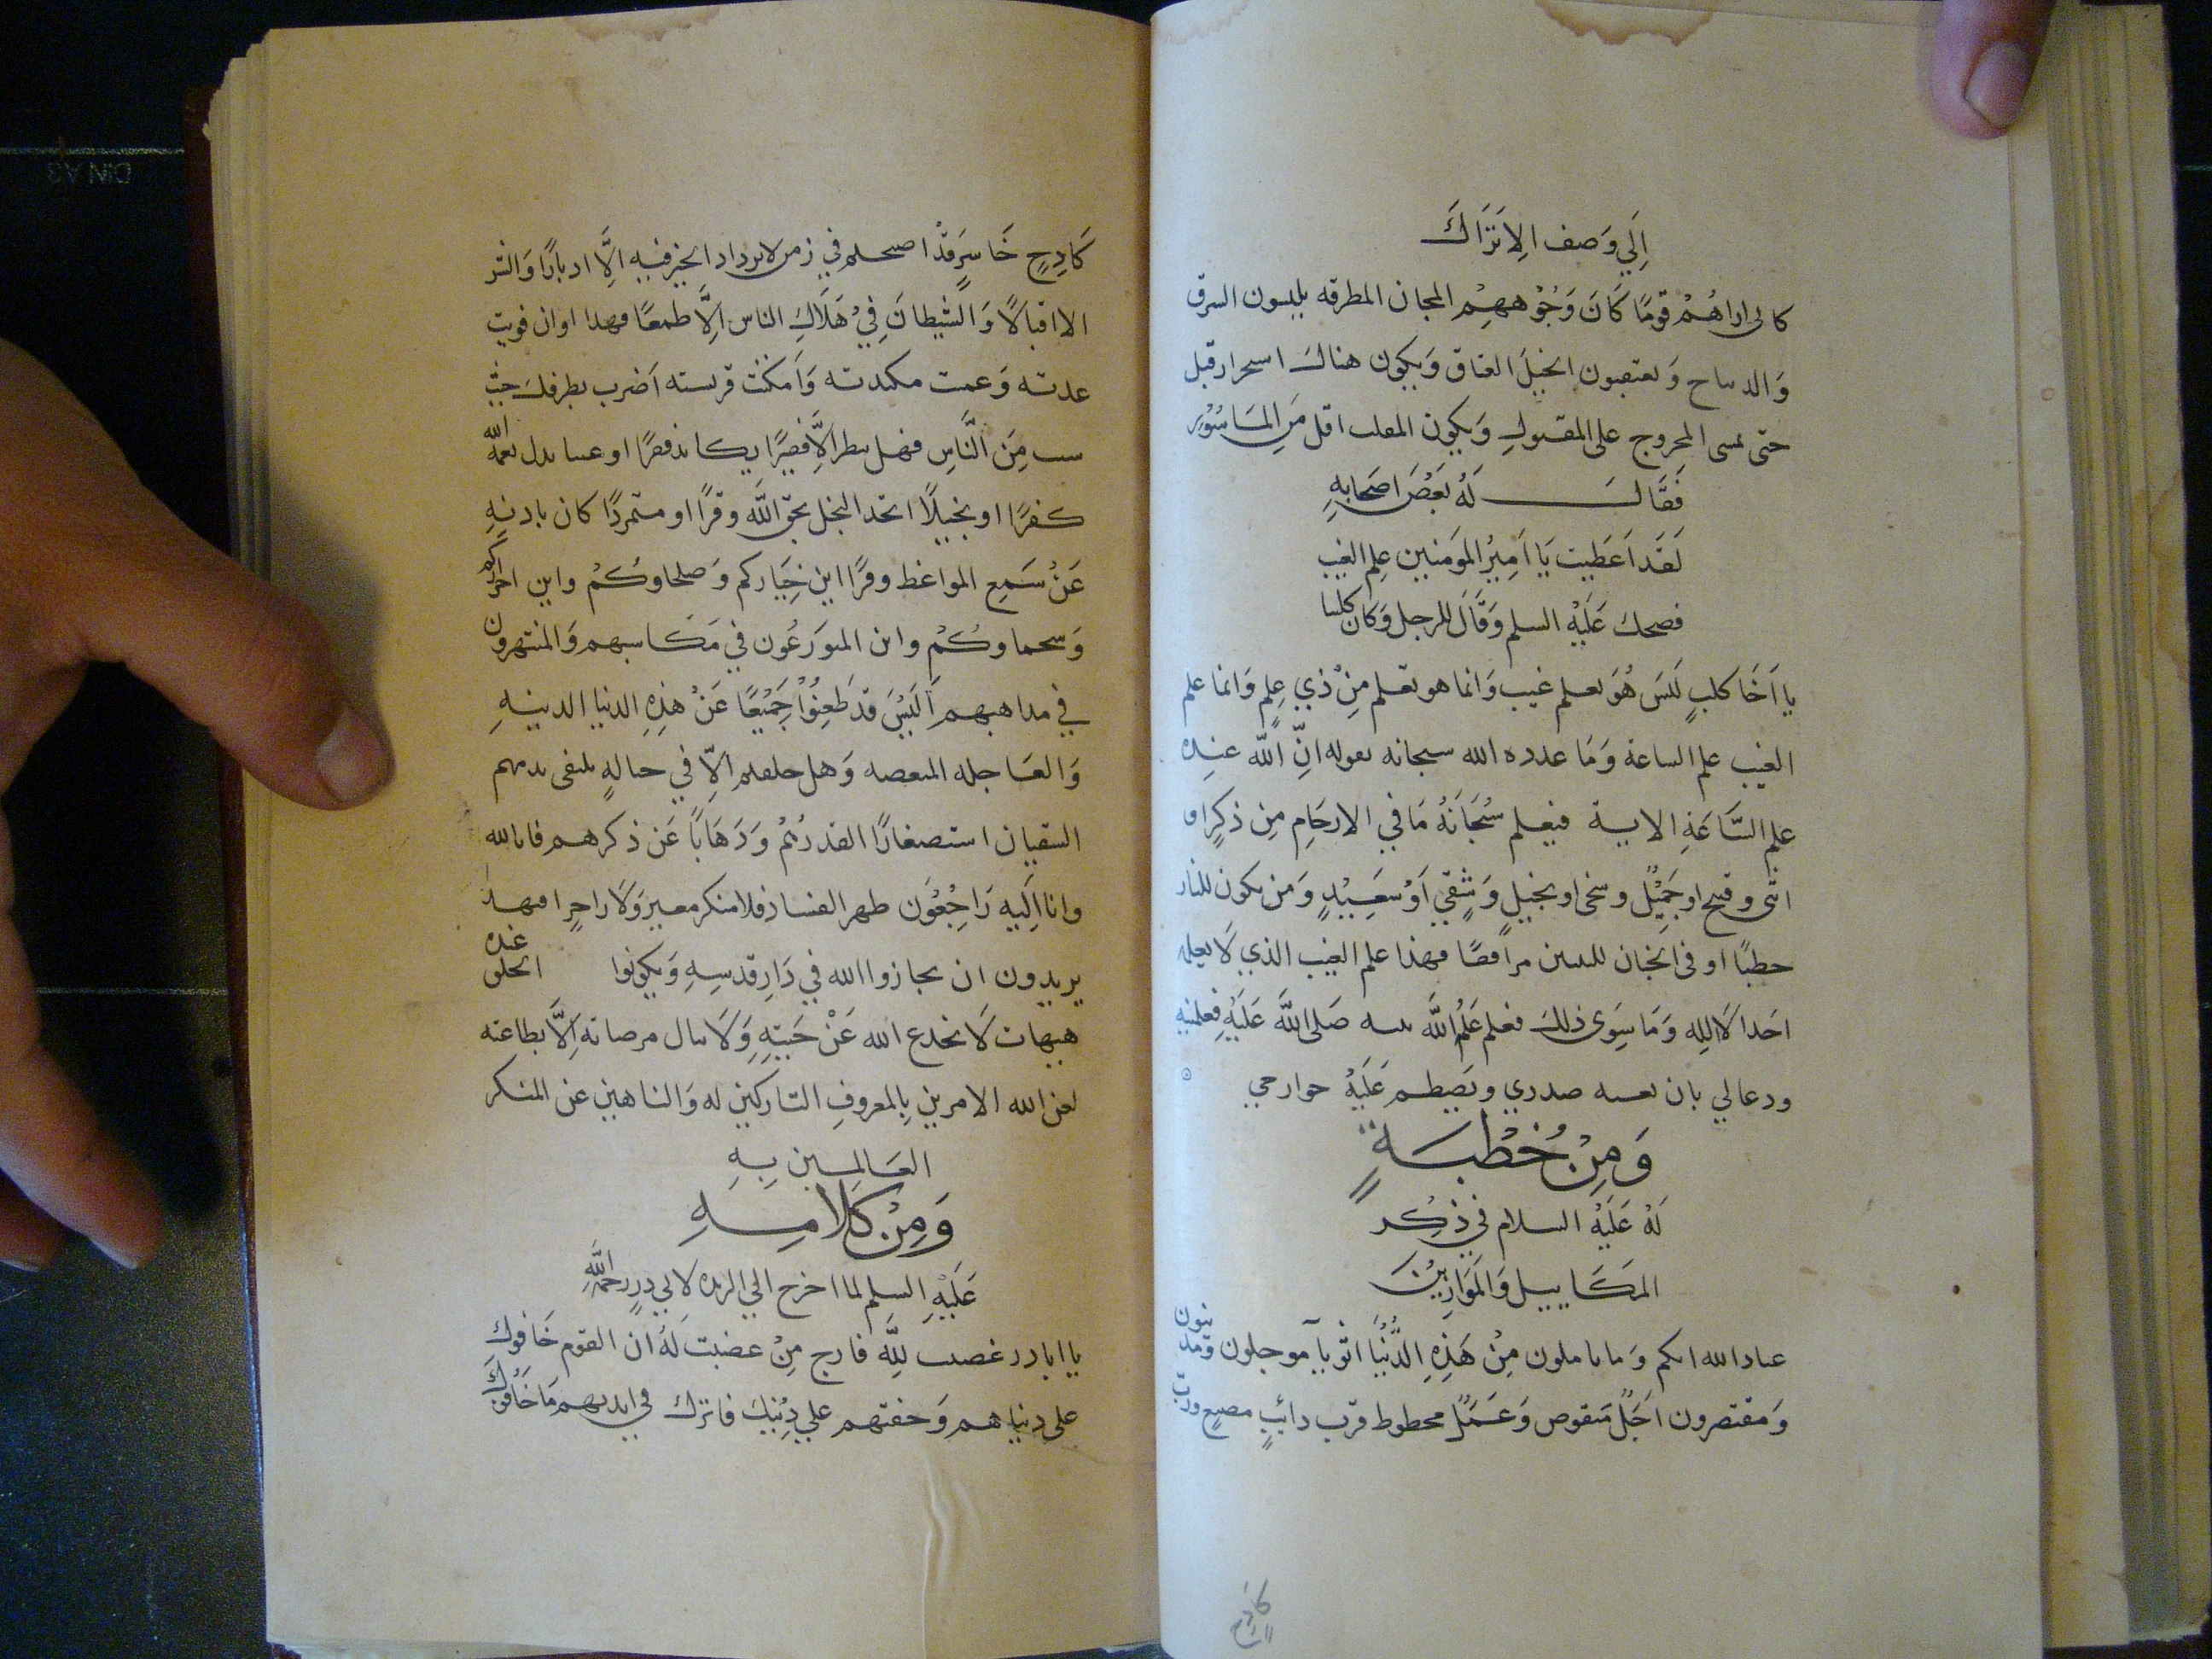 اِلي وَصف الاتراكَ
كانى اراهُمْ قومًا كَانَ وَجُوْههِمْ المجان المطرقه يلبسون السرق
وَالدىىاح وَىعتقبون الخيلَ العتاق وَيكون هناكَ اسحرار قبل
حتى ىمسى المجروح على المقىولِ وَيكون المڡلب اقل مَنِ المَاسُوْرِ
فَقَالَ لَهُ بَعْضَ اصحَابِهِ
لَقَد اَعَطيت يَا اَمِيرُ المؤمنين عِلم الغيب
فصحك عَلَيْهِ السلم وَقَالَ للرجل وَكان كلىىا
يا اَخَا كلبٍ لَىسَ هُوَ ىعلم غيب وَانما هو تعلم مِنْ ذي عِلمٍ وَانما علم
الغيب علم الساعة وَمَا عدده الله سبحانه ىقوله اِنَّ اللَّه عنده
علم السَّاعَةِ الاية فيعلم سُبْحَانَهُ مَا في الارحَامِ مِن ذكرٍ او
انثى وقبيح او جَمِيْلٍ وسخى او بخيلٍ وَشقيٍ اَوْ سَعِيْدٍ وَمن يكون للنار
حطبًا او فى الجنان للنىىين مرافقًا فهذا علم الغيب الذي لَا يعلمه
احَدا لَا الله وَمَا سِوَى ذلكَ فعلم عَلمُ اللَّه ىىىه صَلى اللَّه عَلَيْهِ فعلمنيه
ودعا لي بان ىعىه صدري وتَصطم عَلَيْهِ جوارحي
وَمِنْ خُطْبَةٍ
لَهُ عَلَيْهِ السلام في ذِكر
المكَاييل وَالمَوَازيْنَ
عباد الله انكم وَما تاملون مِنْ هَذِهِ الدُّنْيَا اثوِيآ موجلون ومدىىون
وَمقتصرون اَجَلٌ مَنقوص وَعَمَلٌ محطوط فرب دائبٍ مضيعٍ ورُبّ
كادح
كَادِحٍ خَاسِرٍ قَدْ اصبحتم في زمن لايزداد الخير فيه اِلَّا ادبارًا وَالشر
الا اقبالًا وَالشيطانَ فِيْ هَلَاكِ الناس اِلَّا طمعًا فهذا اوان قويت
عدته وَعمت مكيدته وَاَمكنت فريسته اَضرب بطرفك حيث
شىت مِنَ النَّاسِ فهل تنظر الَّا فقيرًا يكابد فقرًا او غنيا بدل نعمة الله
كفرًا او بخيلًا اتخذ البخل بحق اللَّه وقرًا او متمردًا كان باذنِهِ
عَنْ سَمعِ المواعظ وقرًا اين خِيَاركم وَصلحاوكُمْ واين احراركم
وَسمحاوكُمْ واين المتورَعُون في مَكَاسبهم وَالمتنزهون
في مذاهبهم اَلَيْسَ قد طَعنُوْا جَمِيْعًا عَنْ هَذِهِ الدنيا الدنيهِ
وَالعَاجله المنغصه وَهل خلفتم الّا في حثالهٍ تلتقى بذمهم
الشفتان استصغارًا لقدرهُمْ وَذَهَابًا عَن ذكرهم فانا لله
وانا اِليه رَاجِعُوْن ظهر الفساد فلا منكر مغير وَلَا زاجر افبهذا
يريدون ان تجازوا الله في دَارِ قدسِهِ وَيكونوا اىحلق عنده
هيهات لَا يخدع الله عَنْ جَنتِهِ وَلَا تنال مرضاته اِلَّا بطاعته
لعن الله الامرين بِالمعروفِ التاركين له وَالناهين عن المنكر
العَاملين بِهِ
وَمِنْ كَلَامِهِ
عَلَيْهِ السلم لما اخرج الي الربذه لابي ذرٍ رحمه اللَّهِ
يا اباذر غضبت لِلَّه فارج مِنْ غضبت لَهُ ان القوم خَافوك
على دنياهم وَخفتهم علي دِيْنِكَ فاترك في ايديهم مَا خَافوكَ